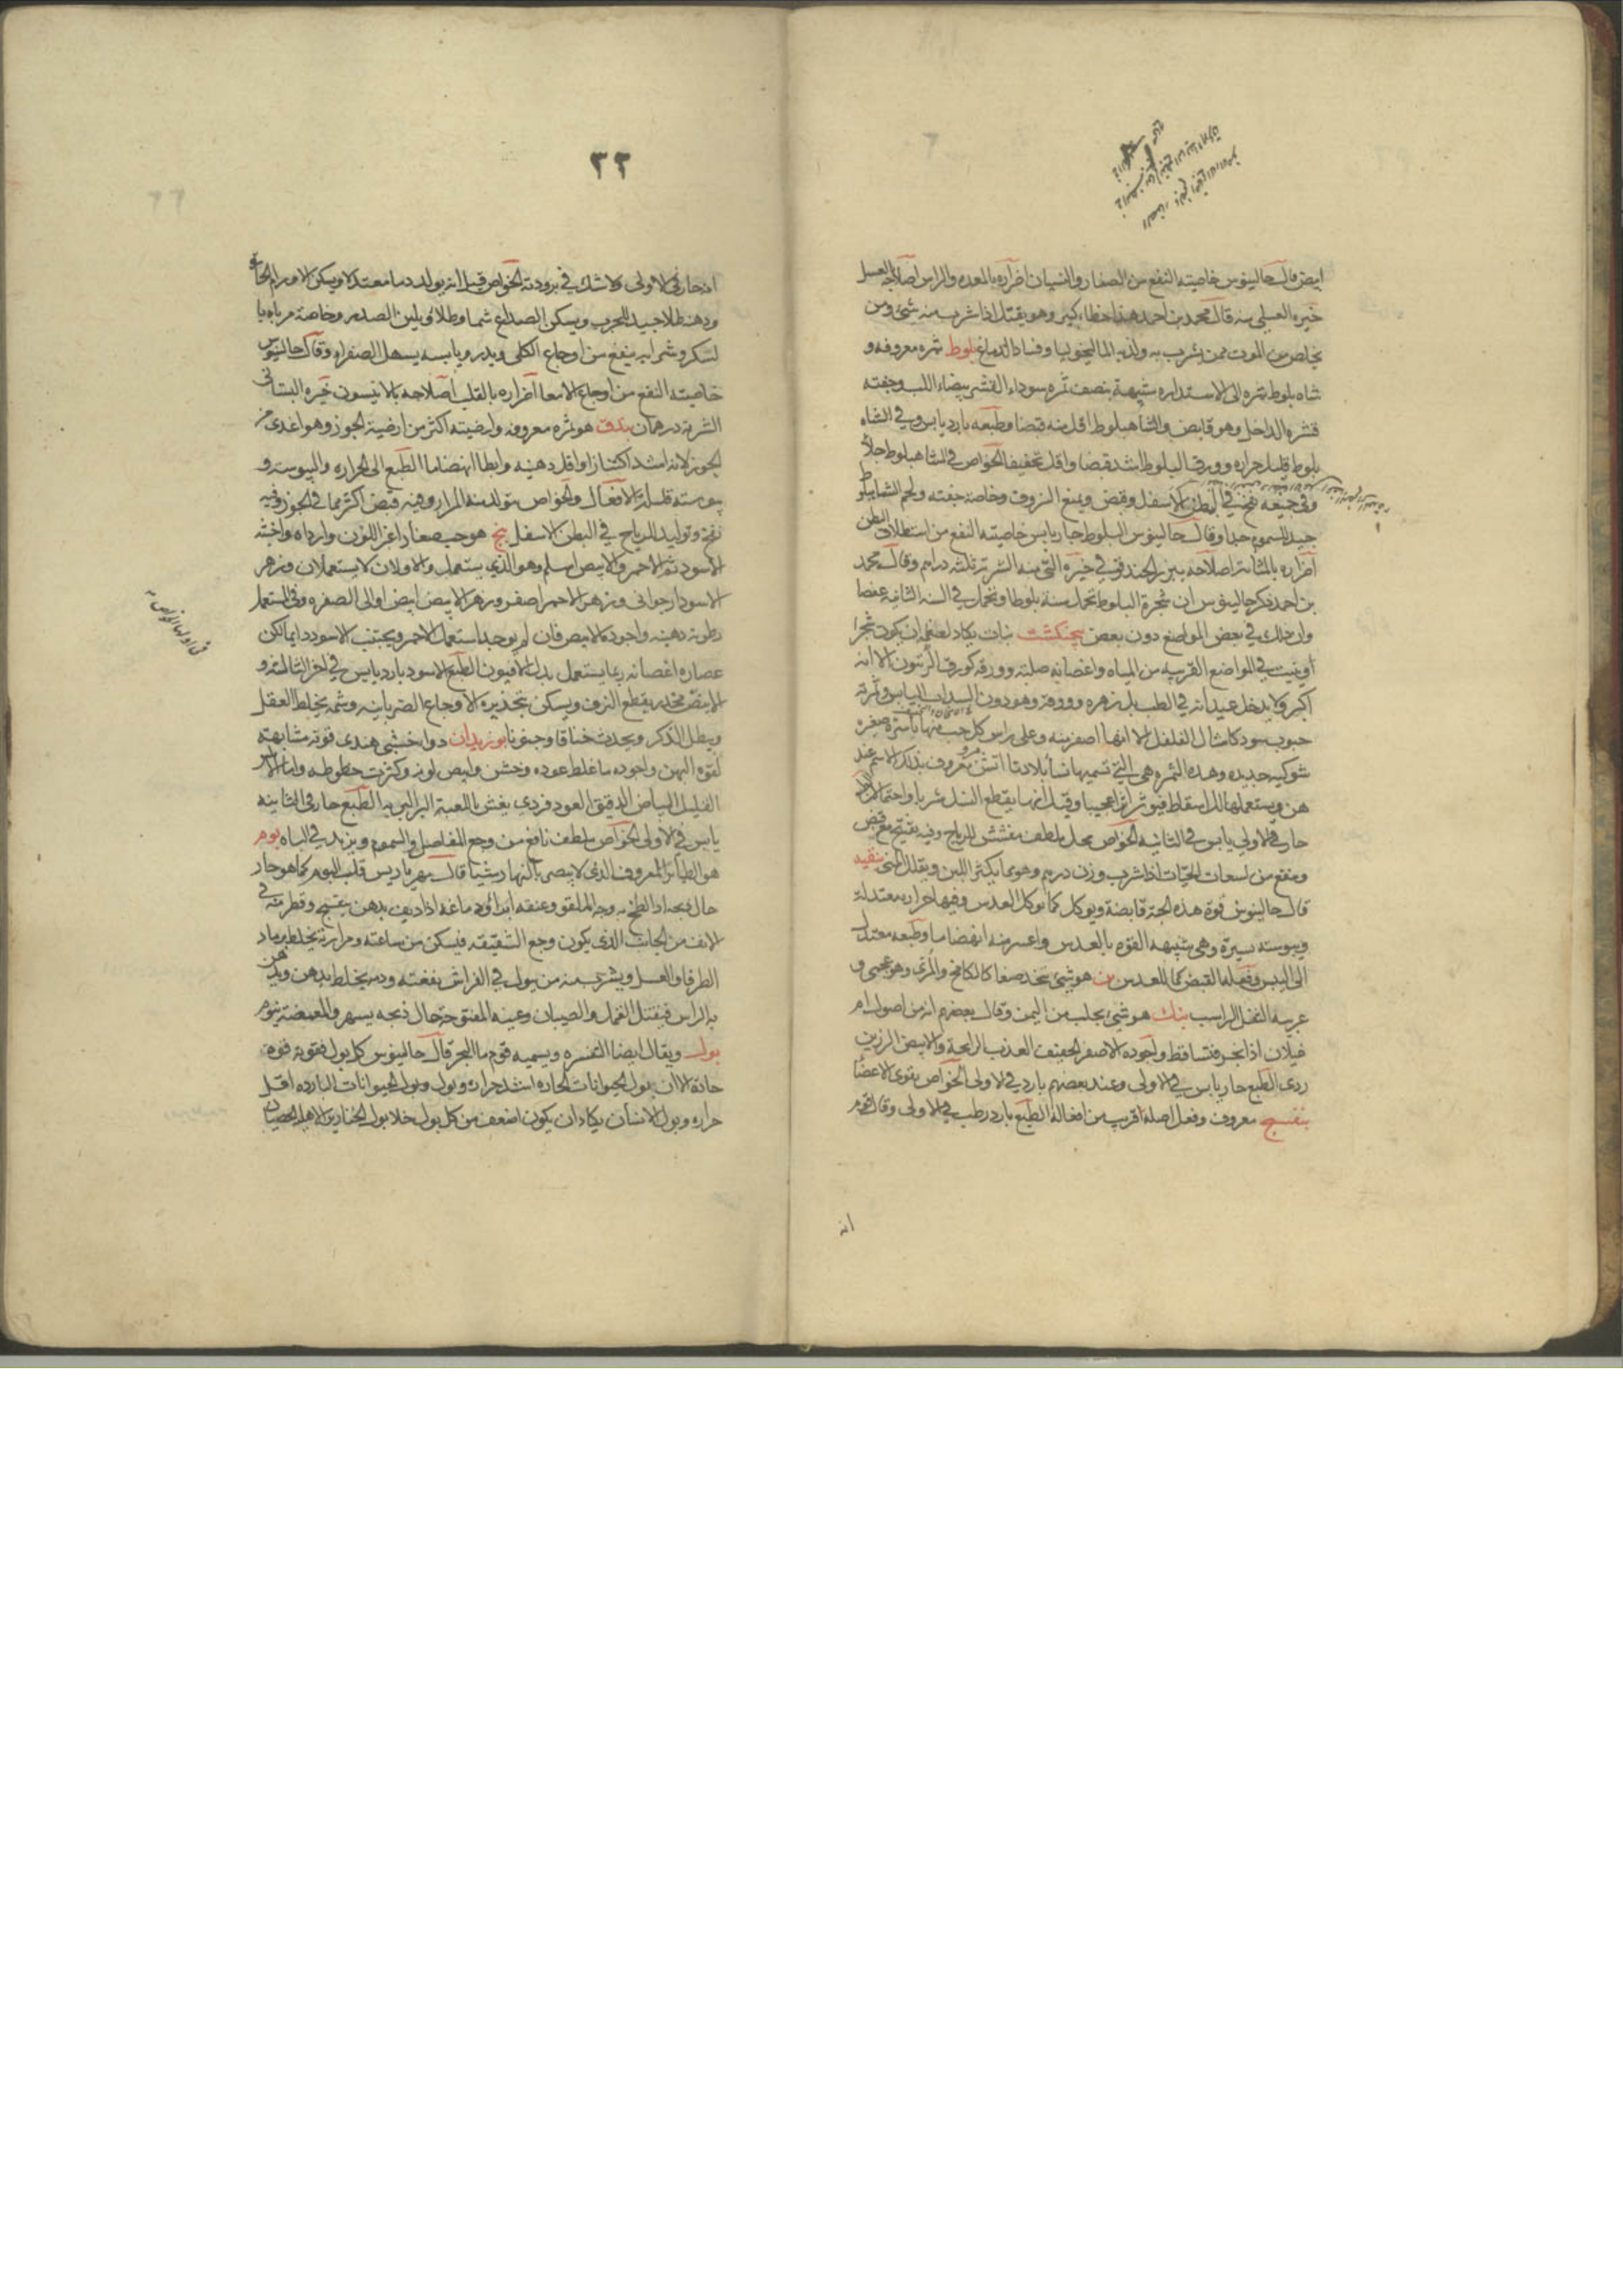 ابيض قال جالينوس خاصيته النفع من الصفار والنسيان اضراره بالمعده والراس اصلاحه العسل
خيره العسلى منه قال محمد بن احمد هذا خطاء كبير وهو يقتل اذا شرب منه شئ ومن
يخلص من الموت ممن يشرب به ولديه الماليخوليا وفساد الدماغ بلوط ثمره معروفه و
شاه بلوط ثمره الى الاستداره شبيهة بنصف ثمره سوداء القشر بيضاء اللب وجفته
قشره الداخل وهو قابض والشاهبلوط اقل منه قبضا وطبعه بارد يابس وفي الشاه
بلوط قليل حراره وورق البلوط اشد قبضا واقل تجفيفا الخواص في الشاهبلوط جلاء
وفي جميعه نفخ في البطن الاسفل وقبض ويمنع النزوف وخاصة جفته ولحم الشاهبلوط
جيد للسموم جدا وقال جالينوس البلوط حار يابس خاصيته النفع من استطلاق البطن
اضراره بالمثانه اصلاحه ببزر الحندقوقي خيره النقي منه الشربة ثلثه دراهم وقال محمد
بن احمد ذكر جالينوس ان شجرة البلوط تحمل سنة بلوطا وتحمل في السنه الثانيه عفصا
وان ذلك في بعض المواضع دون بعض بنجنكشت نبات يكاد لعظمه ان يكون شجرا
وينبت في المواضع القريبه من المياه واغصانه صلبه وورقه كورق الزيتون الا انه
اكبر ولا يدخل عيدانه في الطب بل زهره وورقه وهو دون السداب اليابس وثمرته
حبوب سود كامثال الفلفل الا انها اصفر منه وعلى راس كل حب منها باسره صغيره
شوكيه حديده وهذه الثمره هي التي تسميها نسأ بلادنا معروف بذلك الاسم عند
هن ويستعملها للاسقاط فيوثر اثرا عجيبا وقيل انها يقطع النسل شربا واحتمالا
حار في الاولي يابس في الثانيه الخواص محلل ملطف مفشش للرياح وفيه تفتيح مع قبض
وينفع من لسعات الحيات اذا شرب وزن درهم وهو مما يكثر اللبن ويقلل المني
قال جالينوس قوة هذه الحبة قابضة ويوكل كما يوكل العدس وفيها حراره معتدلة
ويبوسته يسيرة وهي شبيهه القوة بالعدس واعسر منه انهضاما وطبعه معتدل
الى اليبس وفعلها القبض كما للعدس بن هو شئ يتخذ صبغا كالكامخ والمرى وهو عجمى و
عربيه الثفل الراسب بنك هو شئ يجلب من اليمن وقال بعضهم انه من اصول ام
غيلان اذا نخر فتساقط واجوده الاصفر الخفيف العذب الرائحة والابيض الرزين
ردى الطبع حار يابس في الاولى وعند بعضهم بارد في الاولى الخواص يقوى الاعضا
بنفسج معروف وفعل اصله قريب من افعاله الطبع بارد رطب في الاولى وقال قوم
انه
٢٢
انه حار في الاولى ولا شك في برودته الخواص قيل انه يولد دما معتدلا ويسكن الاورام الحاره
ودهنه طلا جيد للجرب ويسكن الصداع شما وطلا ويلين الصدر وخاصة مرباه با
لسكر وشرابه ينفع من اوجاع الكلى ويدر ويابسه يسهل الصفراء وقال جالينوس
خاصيته النفع من اوجاع الامعا اضراره بالقلب اصلاحه بالانيسون خيره البستانى
الشربة درهمان بندق هو ثمره معروفه وارضيته اكثر من ارضية الجوز وهو اغدى من
الجوز لانه اشد اكتنازا واقل دهنيه وابطا انهضاما الطبع الى الحراره واليبوسه و
يبوسته قليلة الافعال والخواص يتولد منه المرار وفيه قبض اكثر مما في الجوز وفيه
نفخ وتوليد للرياح في البطن الاسفل بنج هو حب صغار اغبر اللون وارداه واخبثه
الاسود ثم الاحمر والابيض اسلم وهو الذي يستعمل والاولان لا يستعملان وزهر
الاسود ارجوانى وزهر الاحمر اصفر وزهر الابيض ابيض او الى الصفره وفي المستعمل
رطوبة دهنيه واجوده الابيض فان لم يوجد استعمل الاحمر ويجتنب الاسود دايما لكن
عصاره اغصانه ربما يستعمل بدل الافيون الطبع الاسود بارد يابس في اخر الثالثه و
الابيض مخدر يقطع النزف ويسكن بتخديره الاوجاع الضربانيه وشمه يخلط العقل
ويبطل الذكر ويحدث خناقا وجنونا بوزيدان دوا خشبى هندى قوته مشابهته
لقوة البهمن واجوده ما غلظ عوده وخشن وابيض لونه وكثرت خطوطه واما الاملس
القليل البياض الدقيق العود فردي يغش باللعبه البربريه الطبع حار في الثانيه
يابس في الاولى الخواص ملطف نافع من وجع المفاصل والسموم ويزيد في الباه بوم
هو الطائر المعروف الذي لا يبصر بالنهار شيأ قال مهراريس قلب البوم كما هو حار
حال ذبحه اذا لطخ به وجه الملقو وعنقه ابراه ودماغه اذا ديف بدهن بنفسج وقطر منه في
الانف من الجانب الذي يكون وجع الشقيقه فيسكن من ساعته ومرارته يخلط برماد
الطرفا والعسل ويشرب منه من يبول في الفراش ينفعته ودمه يخلط بدهن ويدهن
به الراس فيقتل القمل والصيبان وعينه المفتوحة حال ذبحه يسهر والمغمضة ينوم
بول ويقال ايضا التفسره ويسميه قوم ما البحر قال جالينوس كل بول فقوته قوة
حادة الا ان بول الحيوانات الحاره اشد حرارة وبول الحيوانات البارده اقل
حراره وبول الانسان يكاد ان يكون اضعف من كل بول خلا بول الخنازير الاهليه الخصيان